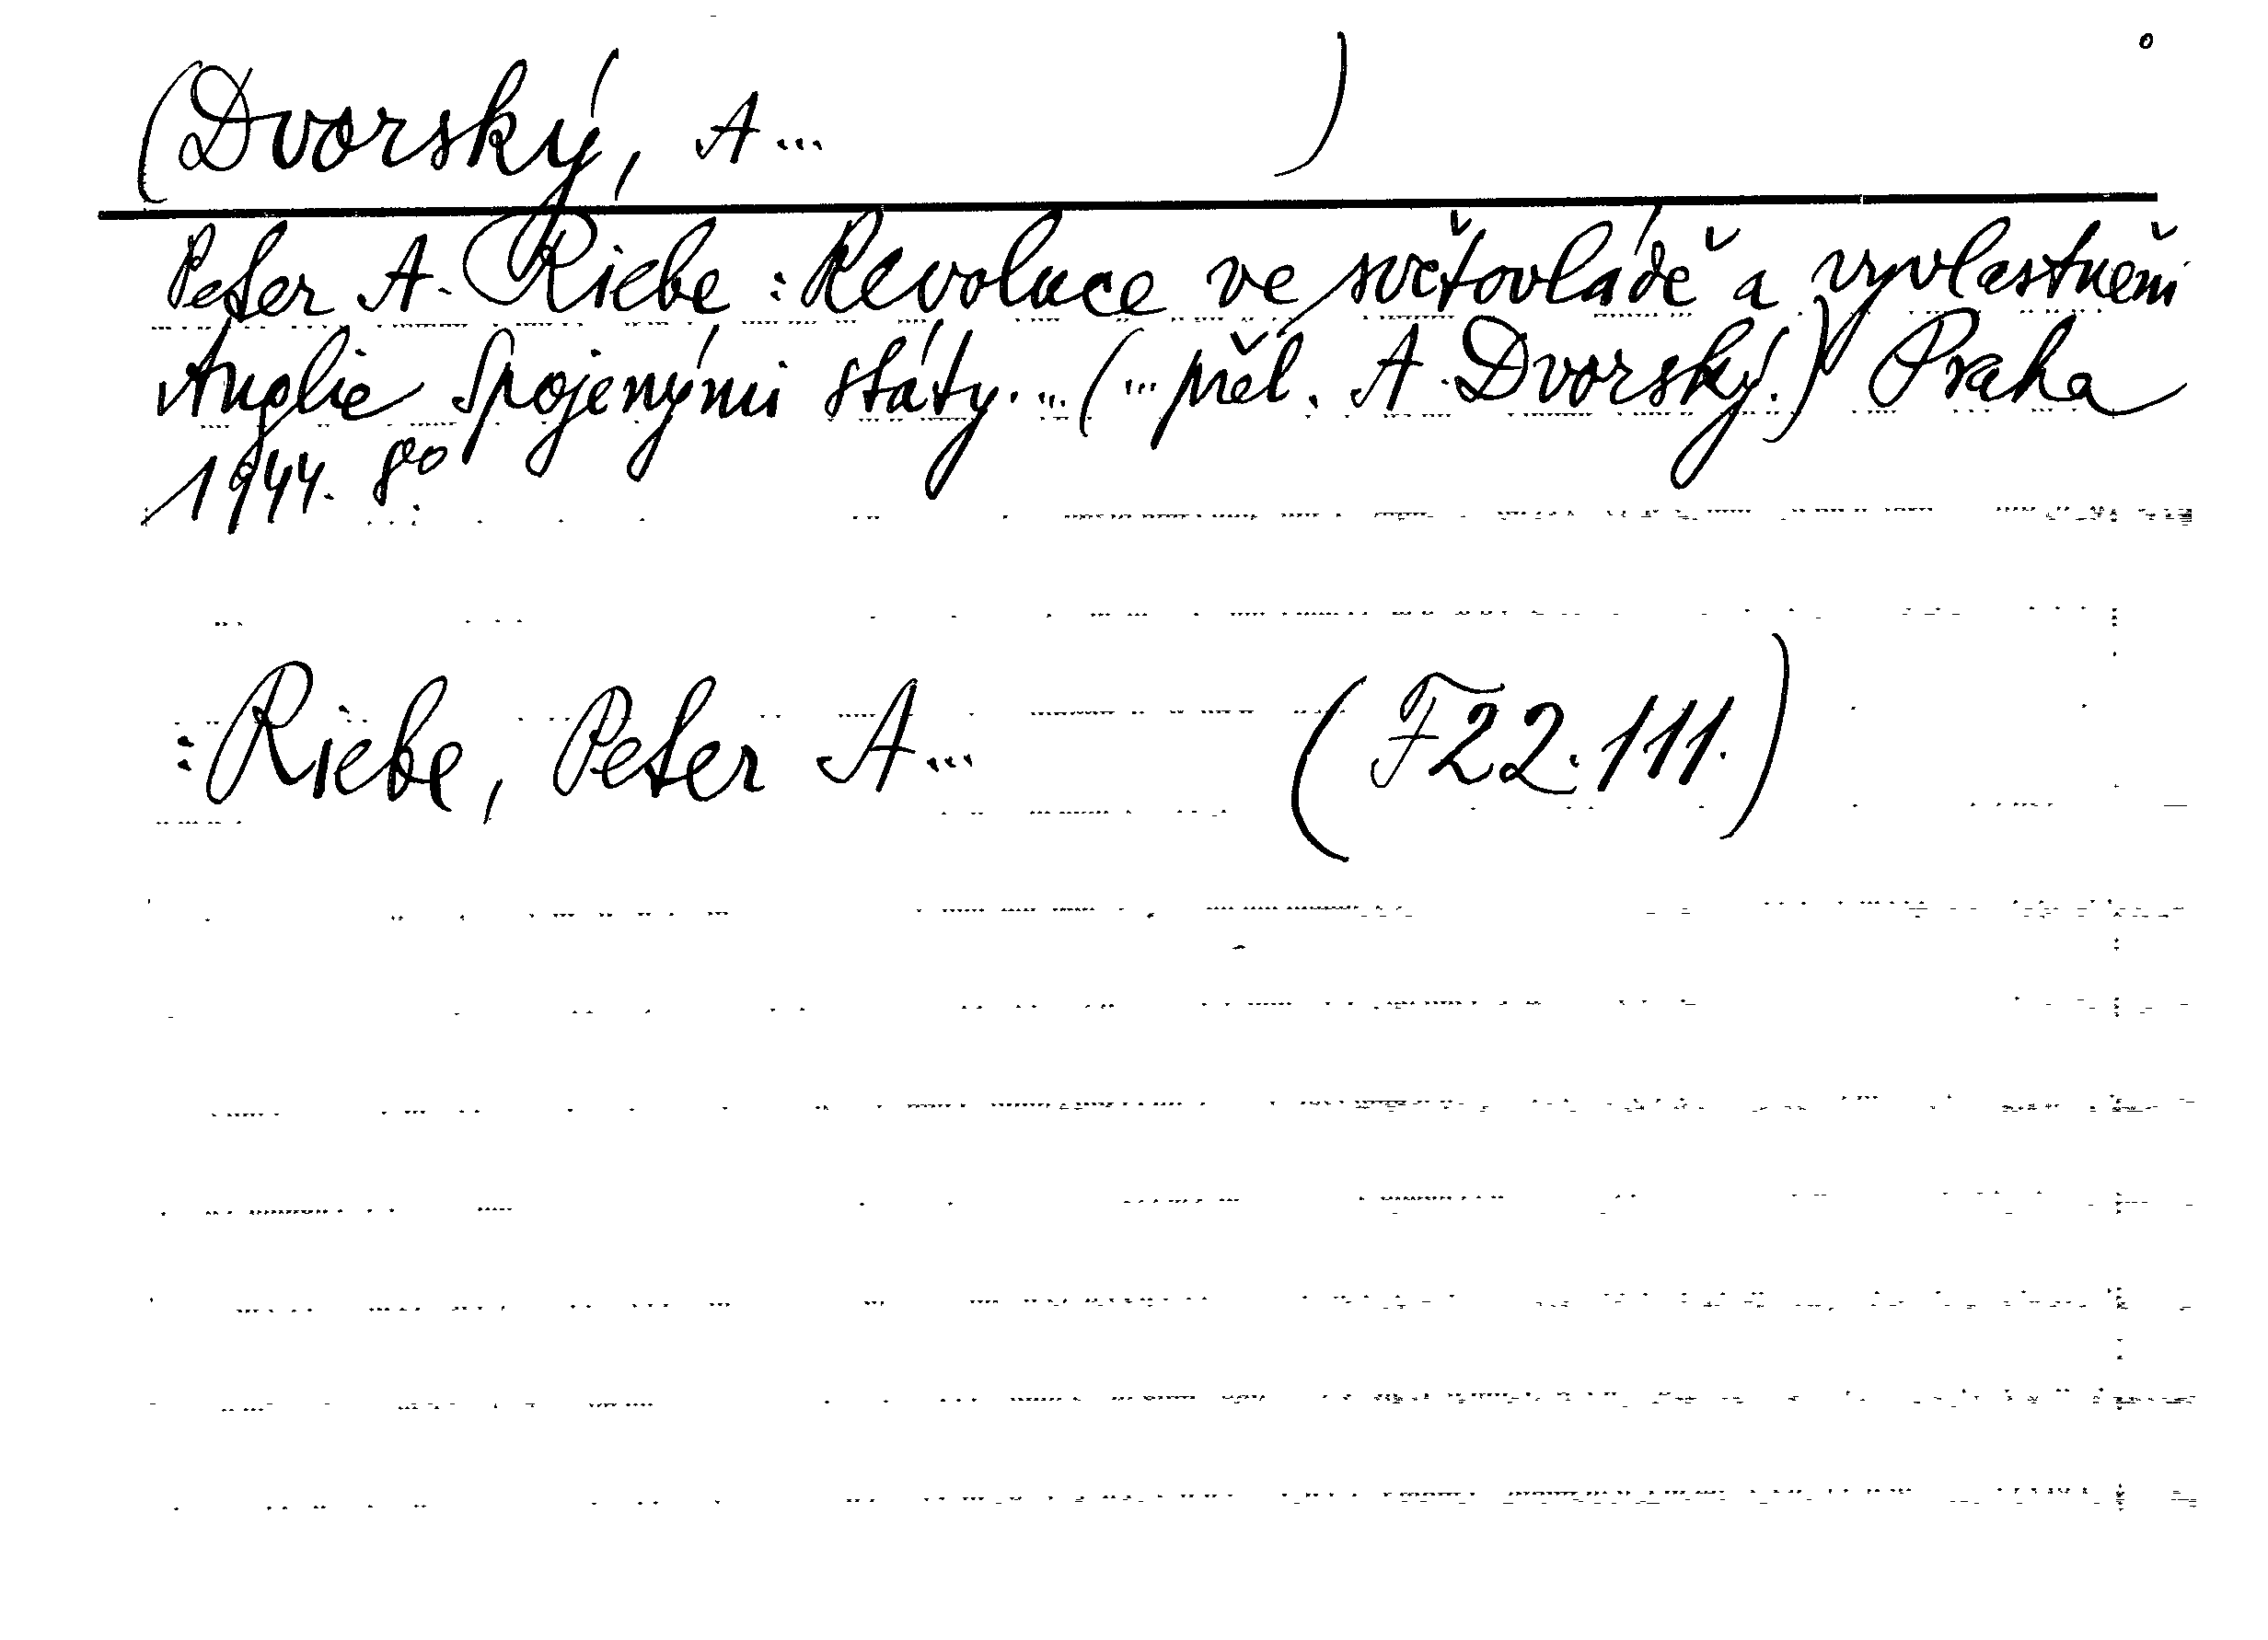 (Dvorský, A... )
Peter A. Riebe: Revoluce ve světovládě a vyvlastnění
Anglie Spojenými státy. ... (... přel. A. Dvorský.) Praha
1944. 8o
: Riebe, Peter A... (F22.111.)